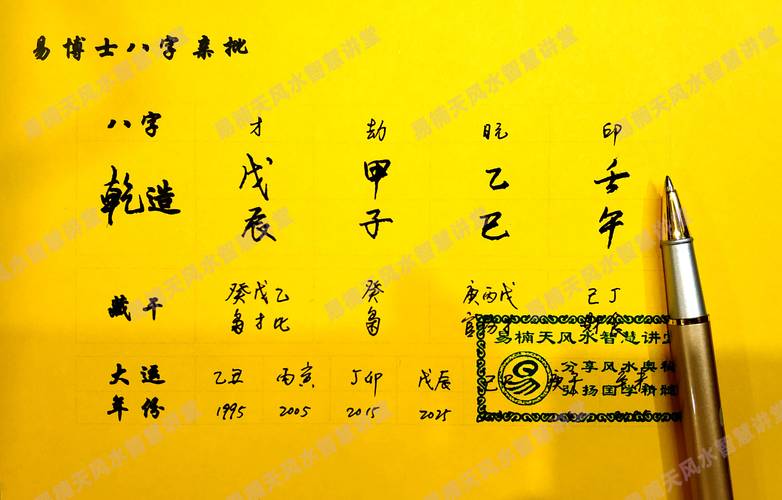 易博士八字亲批
八字 才 劫 日元 印
乾造 戊 甲 乙 壬
辰 子 巳 午
藏干 癸戊乙 癸 庚丙戊 己丁
枭才比 枭 官
易楠天风水智慧讲堂
大运 乙丑 丙寅 丁卯 戊辰
分享风水奥秘
年份 1995 2005 2015 2025
弘扬国学精髓
易
易楠天风水智慧讲堂